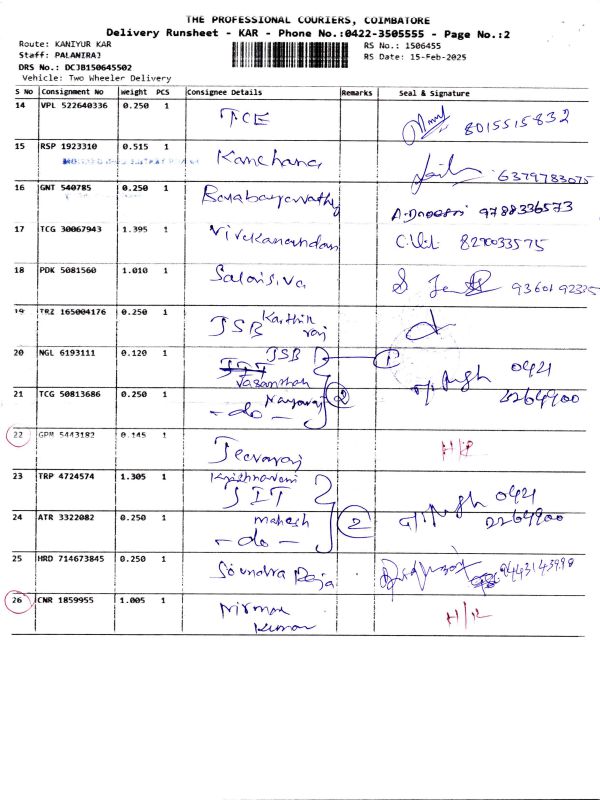 THE PROFESSIONAL COURIERS, COIMBATORE
Delivery Runsheet - KAR - Phone No.:0422-3505555 - Page No.:2
Route: KANIYUR KAR RS No.: 1506455
Staff: PALANIRAJ RS Date: 15-Feb-2025
DRS No.: DCJB150645502
Vehicle: Two Wheeler Delivery
S No Consignment No Weight PCS Consignee Details Remarks Seal & Signature
14 VPL 522640336 0.250 1 TCE 8015515832
15 RSP 1923310 0.515 1 Kanchana 6379783075
16 GNT 540785 0.250 1 9788336573
17 TCG 30067943 1.395 1 Vivekanandan 8270033575
18 PDK 5081560 1.010 1 Salaisiva
19 TRZ 165004176 0.250 1 JSB Karthik raj
20 NGL 6193111 0.120 1 JSB 1 0421
21 TCG 50813686 0.250 1 -do- 2 2264900
22 GPM 5443182 0.145 1 Jeevaraj H/R
23 TRP 4724574 1.305 1 JIT 0421
24 ATR 3322082 0.250 1 mahesh -do- 2 2264900
25 HRD 714673845 0.250 1 Soundra Raja 9443143998
26 CNR 1859955 1.005 1 Nirmal Kumar H/R